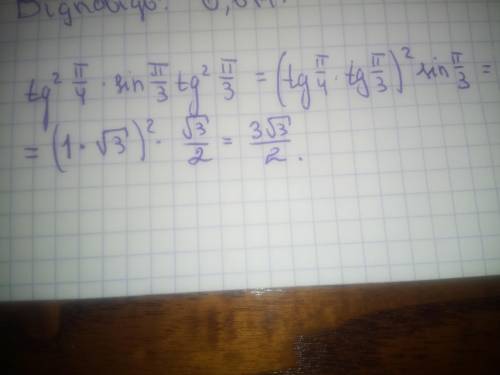 Відповідь: 0,6
tg² π/4 · sin π/3 tg² π/3 = (tg π/4 · tg π/3)² sin π/3 =
= (1 · √3)² · √3/2 = 3√3/2.